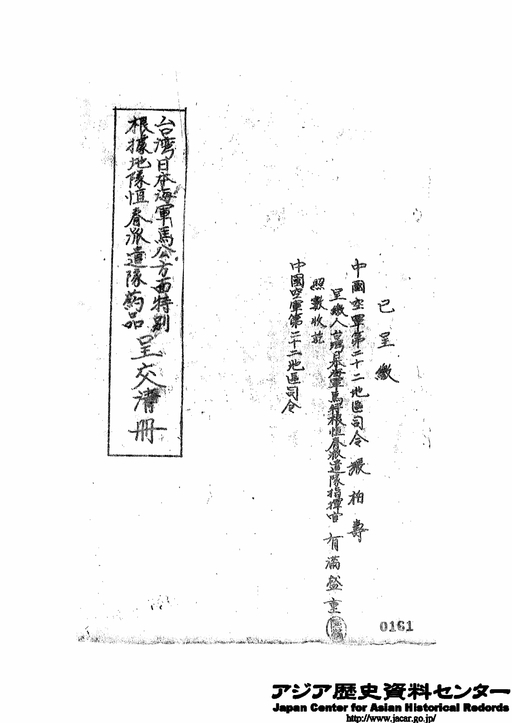 已呈繳
中國空軍第二十二地區司令 張柏壽
呈繳人台灣日本海軍馬特根恒春派遣隊指揮官 有滿盛重
照數收訖
中國空軍第二十二地區司令
台湾日本海軍馬公方面特別
根據地隊恒春派遣隊葯品
呈交清冊
0161
アジア歴史資料センター
Japan Center for Asian Historical Redords
http://www.jacar.go.jp/